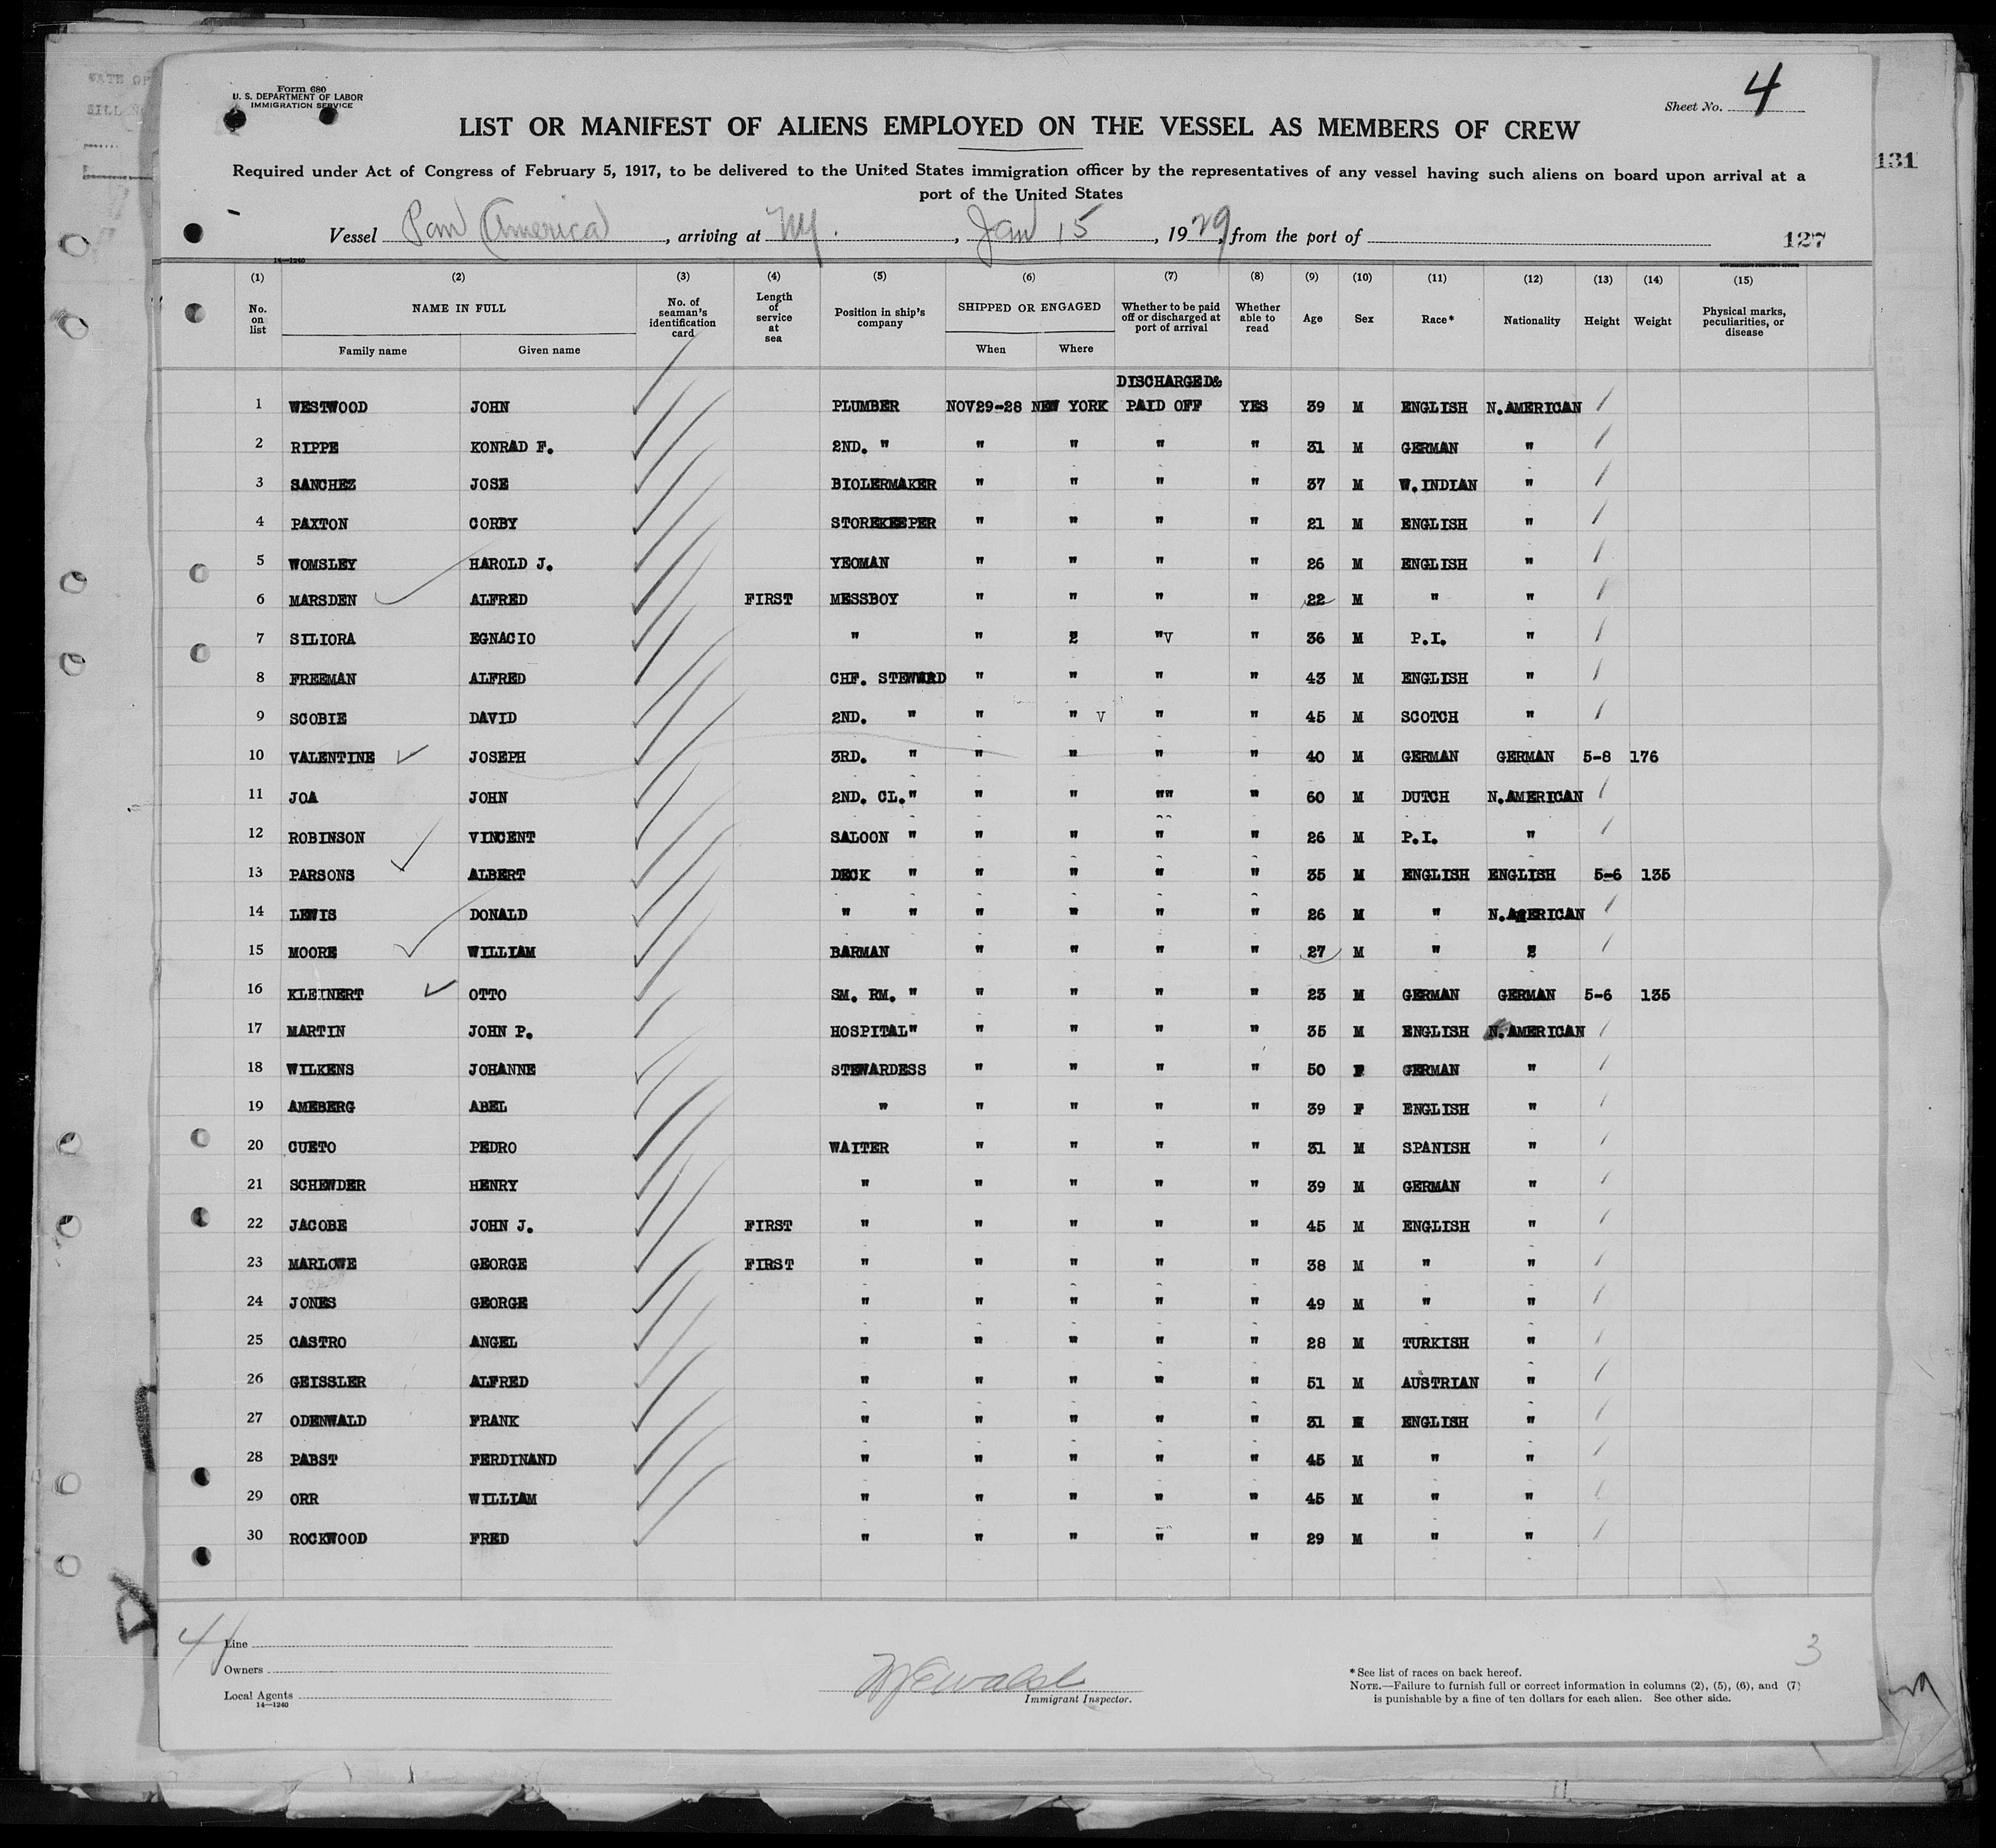 Form 680
U. S. DEPARTMENT OF LABOR
IMMIGRATION SERVICE
Sheet No. 4
LIST OR MANIFEST OF ALIENS EMPLOYED ON THE VESSEL AS MEMBERS OF CREW
131
Required under Act of Congress of February 5, 1917, to be delivered to the United States immigration officer by the representatives of any vessel having such aliens on board upon arrival at a
port of the United States
Vessel Pan America, arriving at NY., Jan 15, 1929, from the port of
127
14—1240
(1) (2) (3) (4) (5) (6) (7) (8) (9) (10) (11) (12) (13) (14) (15)
No. on list NAME IN FULL Family name Given name No. of seaman's identification card Length of service at sea Position in ship's company SHIPPED OR ENGAGED When Where Whether to be paid off or discharged at port of arrival Whether able to read Age Sex Race* Nationality Height Weight Physical marks, peculiarities, or disease
DISCHARGED&
1 WESTWOOD JOHN PLUMBER NOV29-28 NEW YORK PAID OFF YES 39 M ENGLISH N.AMERICAN
2 RIPPE KONRAD F. 2ND. " " " " " 31 M GERMAN "
3 SANCHEZ JOSE BIOLERMAKER " " " " 37 M W.INDIAN "
4 PAXTON CORBY STOREKEEPER " " " " 21 M ENGLISH "
5 WOMSLEY HAROLD J. YEOMAN " " " " 26 M ENGLISH "
6 MARSDEN ALFRED FIRST MESSBOY " " " " 22 M " "
7 SILIORA EGNACIO " " 2 "V " 36 M P.I. "
8 FREEMAN ALFRED CHF. STEWWRD " " " " 43 M ENGLISH "
9 SCOBIE DAVID 2ND. " " " V " " 45 M SCOTCH "
10 VALENTINE JOSEPH 3RD. " " " " " 40 M GERMAN GERMAN 5-8 176
11 JOA JOHN 2ND. CL." " " "" " 60 M DUTCH N.AMERICAN
12 ROBINSON VINCENT SALOON " " " " " 26 M P.I. "
13 PARSONS ALBERT DECK " " " " " 35 M ENGLISH ENGLISH 5-6 135
14 LEWIS DONALD " " " " " " 26 M " N.AMERICAN
15 MOORE WILLIAM BARMAN " " " " 27 M " 2
16 KLEINERT OTTO SM. RM. " " " " " 23 M GERMAN GERMAN 5-6 135
17 MARTIN JOHN P. HOSPITAL" " " " " 35 M ENGLISH N.AMERICAN
18 WILKENS JOHANNE STEWARDESS " " " " 50 F GERMAN "
19 AMEBERG ABEL " " " " " 39 F ENGLISH "
20 CUETO PEDRO WAITER " " " " 31 M SPANISH "
21 SCHEWDER HENRY " " " " " 39 M GERMAN "
22 JACOBE JOHN J. FIRST " " " " " 45 M ENGLISH "
23 MARLOWE GEORGE FIRST " " " " " 38 M " "
24 JONES GEORGE " " " " " 49 M " "
25 CASTRO ANGEL " " " " " 28 M TURKISH "
26 GEISSLER ALFRED " " " " " 51 M AUSTRIAN "
27 ODENWALD FRANK " " " " " 31 M ENGLISH "
28 PABST FERDINAND " " " " " 45 M " "
29 ORR WILLIAM " " " " " 45 M " "
30 ROCKWOOD FRED " " " " " 29 M " "
Line
Owners
Local Agents
14—1240
Immigrant Inspector.
3
* See list of races on back hereof.
NOTE.—Failure to furnish full or correct information in columns (2), (5), (6), and (7)
is punishable by a fine of ten dollars for each alien. See other side.